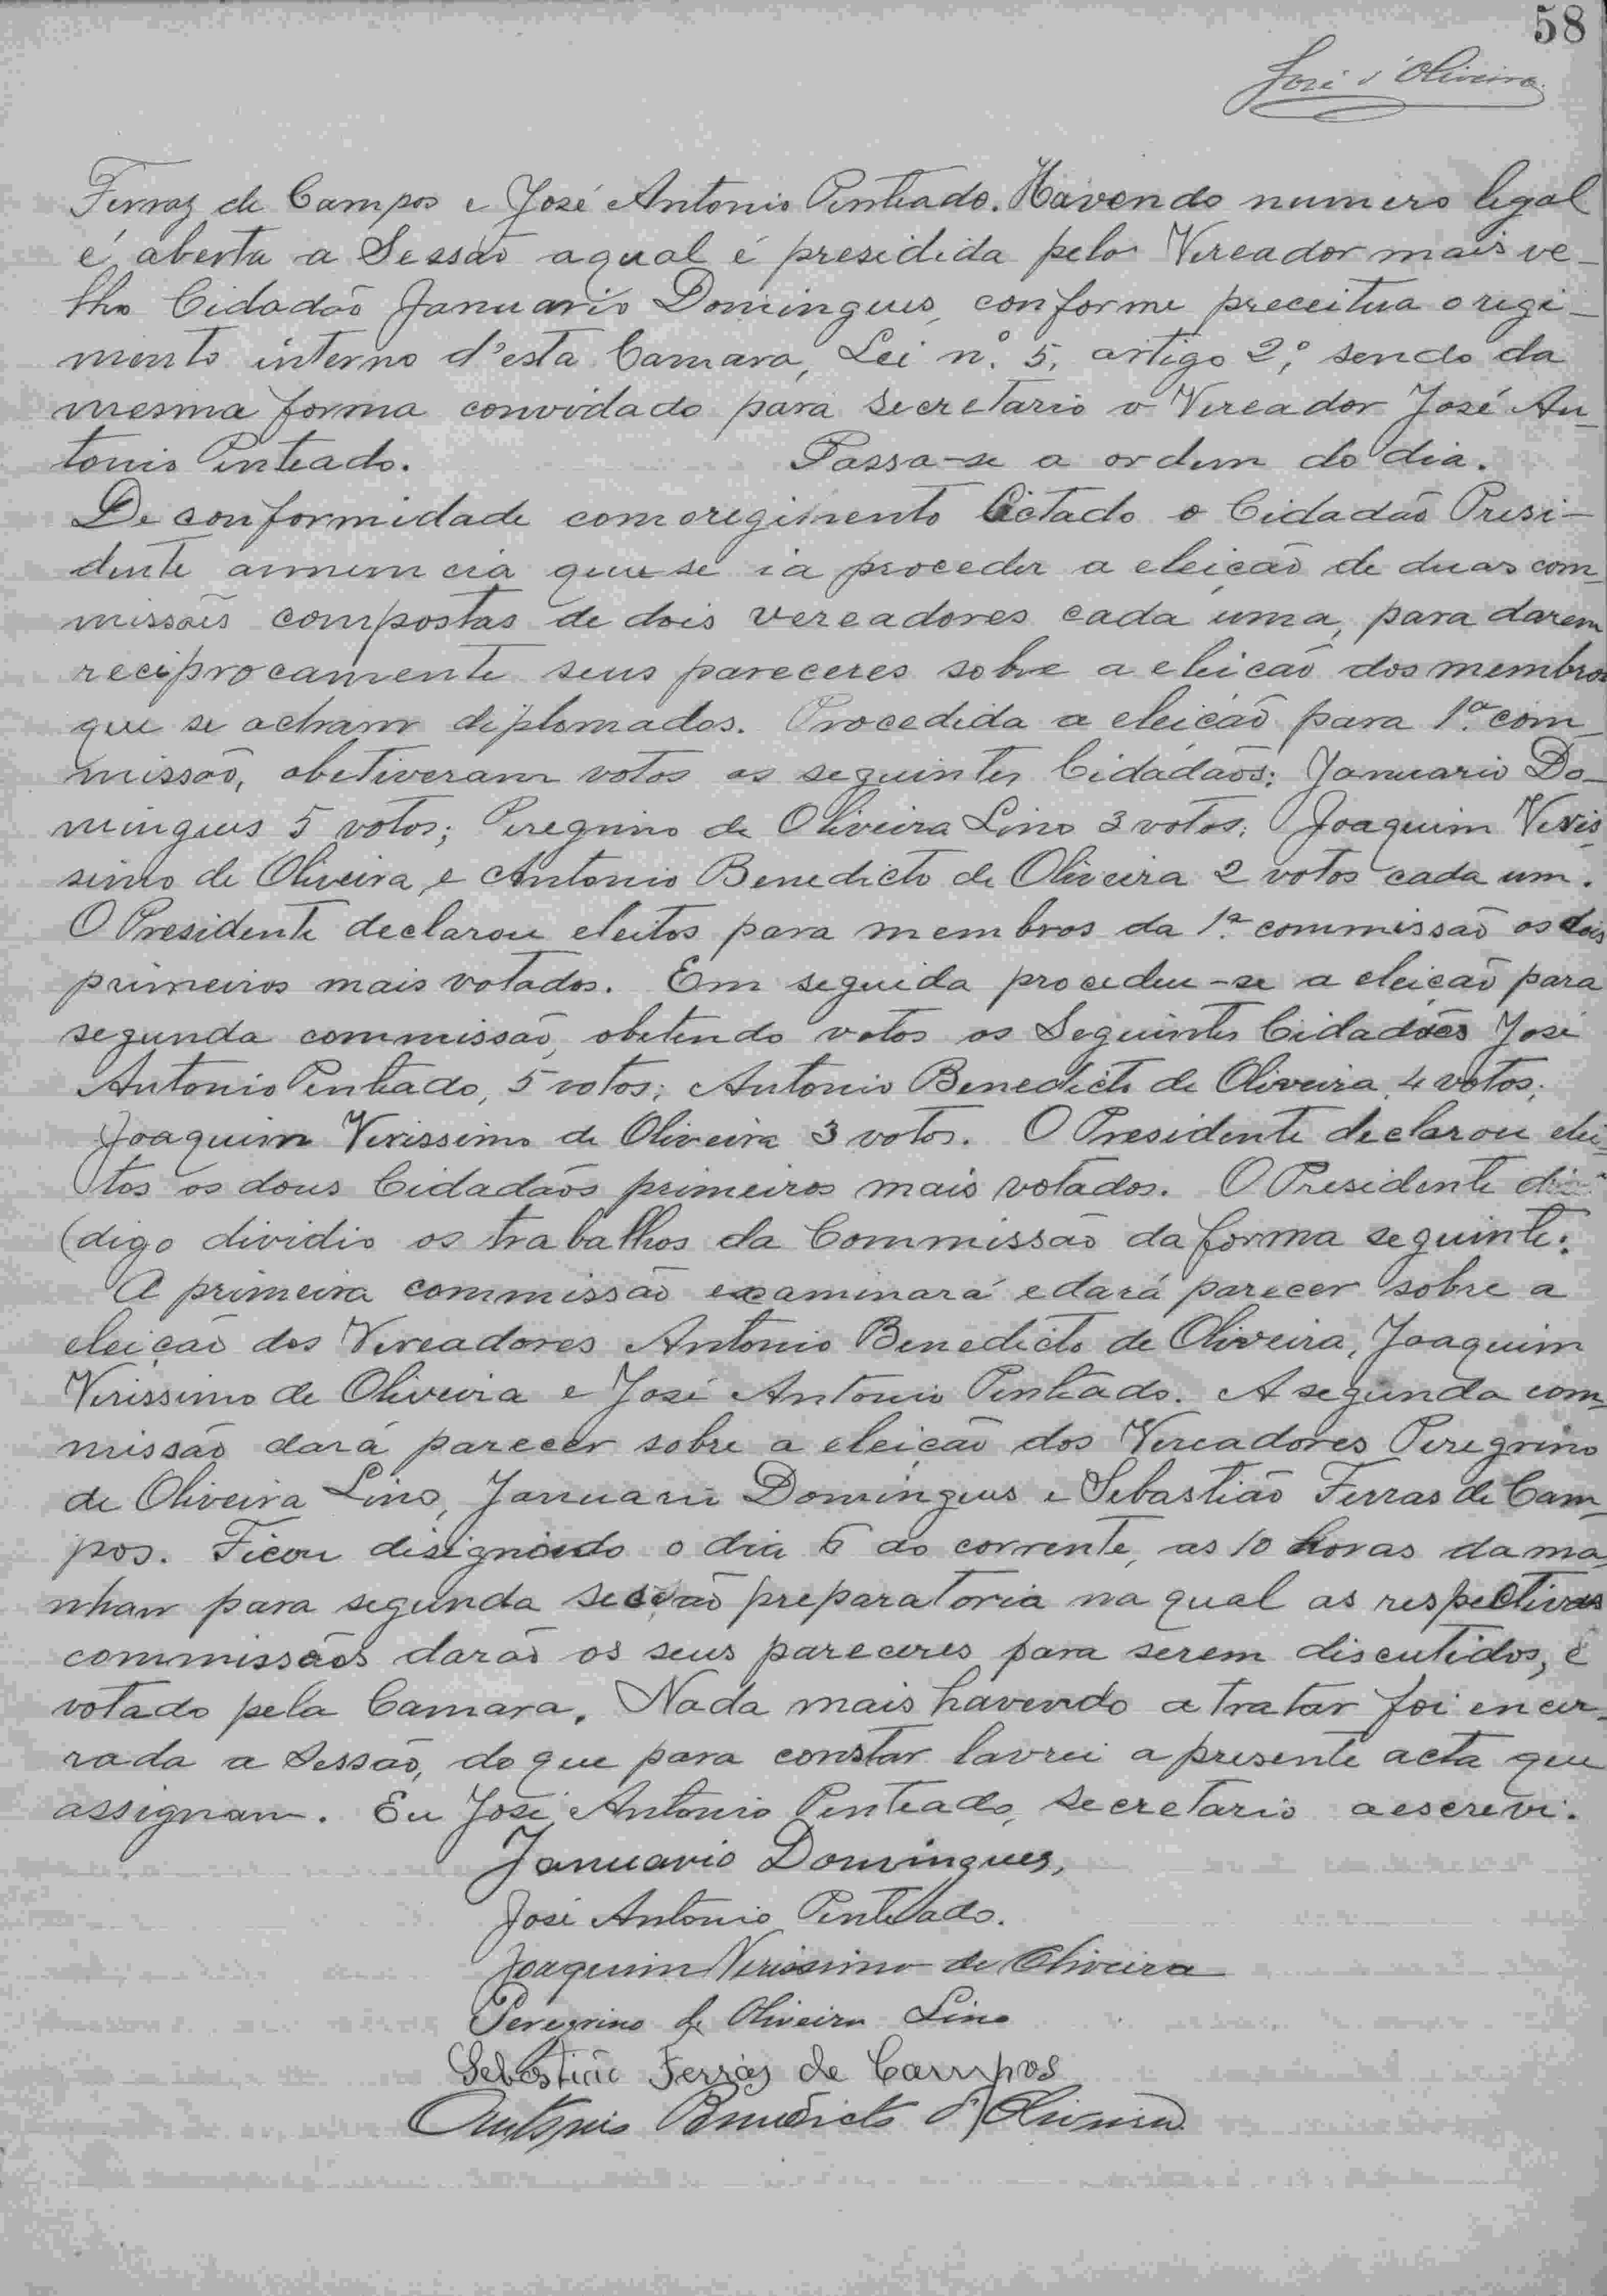 58
José d'Oliveira
Ferraz de Campos e José Antonio Penteado. Havendo numero legal
é aberta a Sessão aqual é presidida pelo Vereador mais ve-
lho Cidadão Januario Domingues, conforme preceitua o regi-
mento interno d'esta Camara, Lei n.º 5, artigo 2º, sendo da
mesma forma convidado para secretario o Vereador José An-
tonio Penteado. Passa-se a ordem do dia.
De conformidade com o regimento Citado o Cidadão Presi-
dente annuncia que se ia proceder a eleição de duas com-
missões compostas de dois vereadores cada uma, para darem
reciprocamente seus pareceres sobre a eleicão dos membros
que se acham diplomados. Procedida a eleicão para 1ª com-
missão, obetiveram votos os seguintes Cidadãos: Januario Do-
mingues 5 votos; Peregrino de Oliveira Lino 3 votos; Joaquim Veris-
simo de Oliveira e Antonio Benedicto de Oliveira 2 votos cada um.
O Presidente declarou eleitos para membros da 1ª commissão os dois
primeiros mais votados. Em seguida procedeu-se a eleição para
segunda commissão, obetendo votos os Seguintes Cidadões José
Antonio Penteado, 5 votos; Antonio Benedicto de Oliveira, 4 votos;
Joaquim Verissimo de Oliveira 3 votos. O Presidente declarou elei-
tos os dous Cidadãos primeiros mais votados. O Presidente
(digo dividio os trabalhos da Commissão da forma seguinte:
A primeira commissão examinará e dará parecer sobre a
eleição dos Vereadores Antonio Benedicto de Oliveira, Joaquim
Verissimo de Oliveira e José Antonio Penteado. A segunda com-
missão dará parecer sobre a eleição dos Vereadores Peregrino
de Oliveira Lino, Januario Domingues e Sebastião Ferras de Cam-
pos. Ficou designado o dia 6 do corrente, as 10 horas da ma-
nhan para segunda secção preparatoria na qual as respectivas
commissãos darão os seus pareceres para serem discutidos, e
votado pela Camara. Nada mais havendo a tratar foi encer-
rada a Sessão, do que para constar lavrei a presente acta que
assignam. Eu José Antonio Penteado, secretario a escrevi.
Januario Domingues,
José Antonio Penteado.
Joaquim Verissimo de Oliveira
Peregrino de Oliveira Lino
Sebastião Ferrás de Campos
Antonio Benedicto d'Oliveira